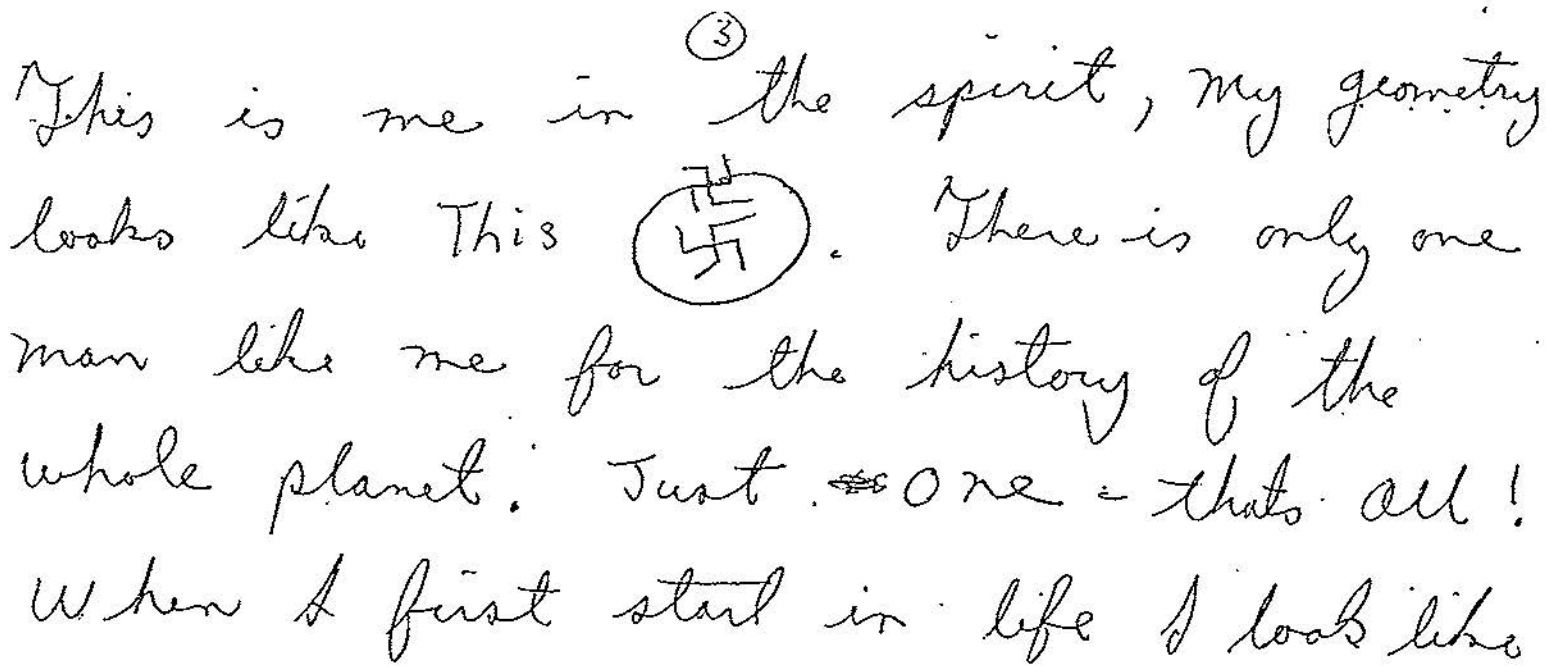 3
This is me in the spirit, My geometry
looks like This . There is only one
man like me for the history of the
whole planet. Just One - thats All!
When I first start in life I look like